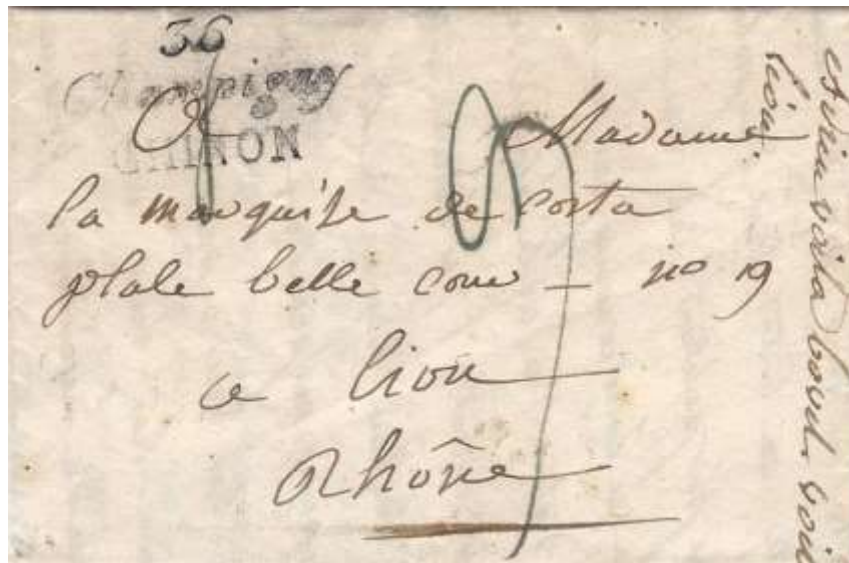 36
Champigny
CHINON
A Madame
la marquise de Costa
plale belle cour — no 19
a lion
Rhône
lion.